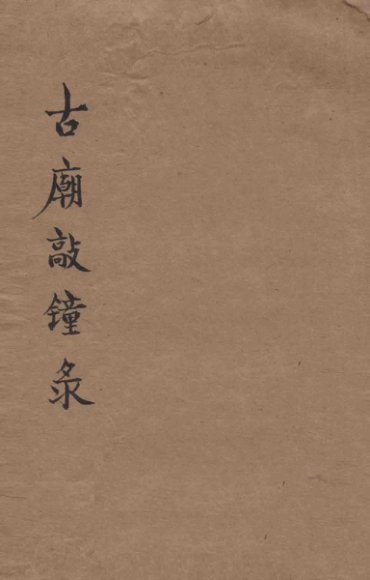 古廟敲鐘录